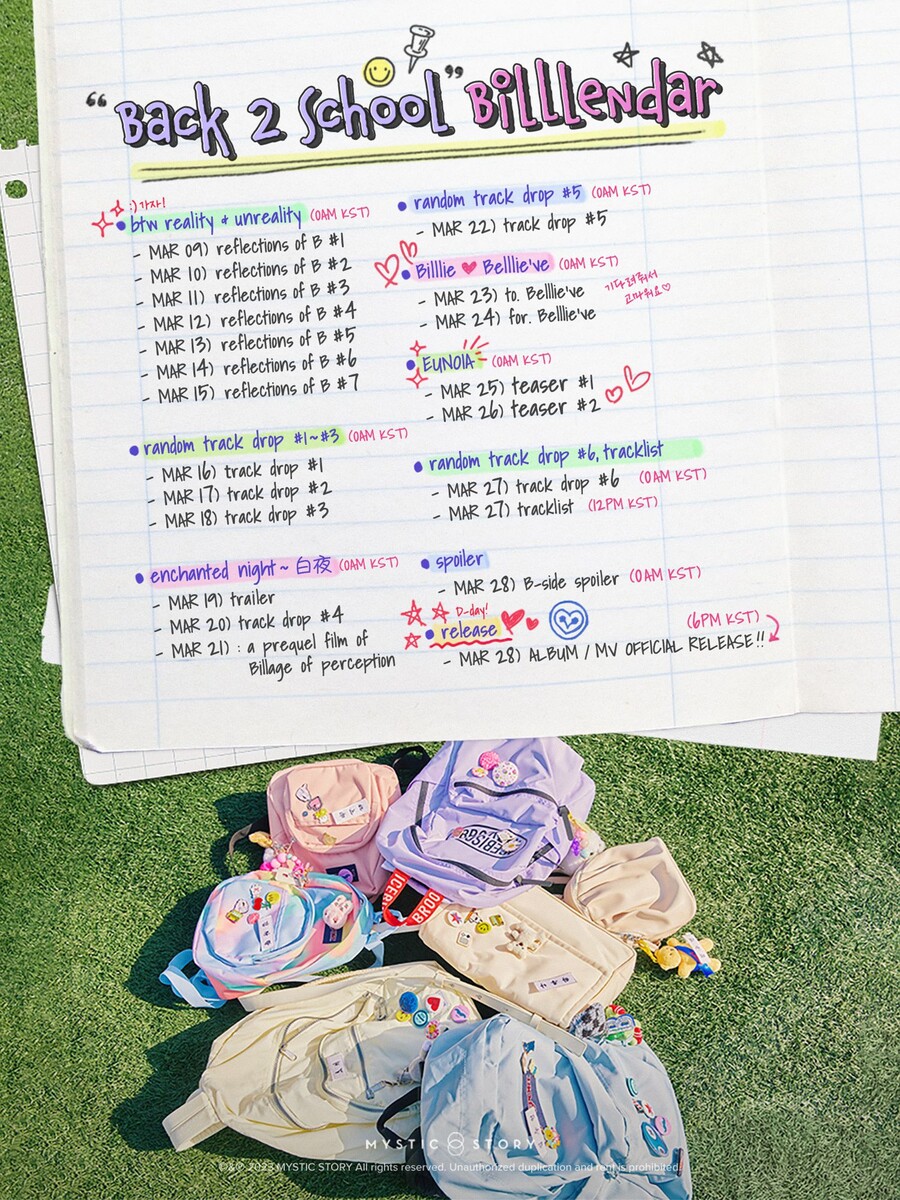 “Back 2 School” Billlendar
:) 가자!
btw reality & unreality (0AM KST)
- MAR 09) reflections of B #1
- MAR 10) reflections of B #2
- MAR 11) reflections of B #3
- MAR 12) reflections of B #4
- MAR 13) reflections of B #5
- MAR 14) reflections of B #6
- MAR 15) reflections of B #7
random track drop #1~#3 (0AM KST)
- MAR 16) track drop #1
- MAR 17) track drop #2
- MAR 18) track drop #3
enchanted night~ 白夜 (0AM KST)
- MAR 19) trailer
- MAR 20) track drop #4
- MAR 21) : a prequel film of
Billage of perception
random track drop #5 (0AM KST)
- MAR 22) track drop #5
Billlie ♥ Belllie've (0AM KST)
- MAR 23) to. Belllie've
- MAR 24) for. Belllie've
기다려줘서
고마워요♡
EUNOIA (0AM KST)
- MAR 25) teaser #1
- MAR 26) teaser #2
random track drop #6, tracklist
- MAR 27) track drop #6 (0AM KST)
- MAR 27) tracklist (12PM KST)
spoiler
- MAR 28) B-side spoiler (0AM KST)
D-day!
release
(6PM KST)
- MAR 28) ALBUM / MV OFFICIAL RELEASE!!
MYSTIC STORY
©&℗ 2023 MYSTIC STORY All rights reserved. Unauthorized duplication and rent is prohibited.